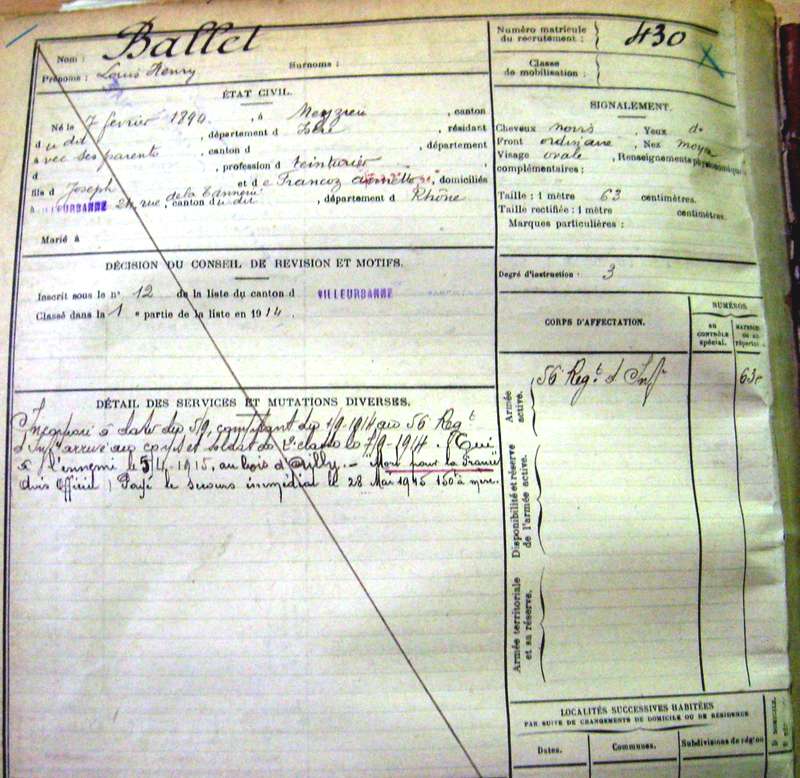 Nom : Ballet
Prénoms : Louis Henry Surnoms :
Numéro matricule du recrutement : 430
Classe de mobilisation :
ÉTAT CIVIL.
Né le 7 février 1894, à Meyzieu, canton
d u dit, département d Isère, résidant
à vec ses parents, canton d , département
d , profession d teinturier
fils d Joseph et d e Francoz, domiciliés
à VILLEURBANNE 24, rue de la Tannerie, canton d u dit, département d Rhône
Marié à
SIGNALEMENT.
Cheveux noirs, Yeux d°
Front ordinaire, Nez moyen
Visage ovale, Renseignements physionomiques
complémentaires :
Taille : 1 mètre 63 centimètres.
Taille rectifiée : 1 mètre centimètres.
Marques particulières :
DÉCISION DU CONSEIL DE REVISION ET MOTIFS.
Inscrit sous le n° 12 de la liste du canton d VILLEURBANNE
Classé dans la 1 e partie de la liste en 1914.
Degré d'instruction : 3
CORPS D'AFFECTATION.
NUMÉROS
au contrôle spécial.
Armée active.
56 Regt. d'Inf.
63
Disponibilité et réserve de l'armée active.
Armée territoriale et sa réserve.
DÉTAIL DES SERVICES ET MUTATIONS DIVERSES.
Incorporé à dater du 5/9, comptant du 1/9-1914 au 56 Regt
d'Inf arrivé au corps et soldat de 2e classe le 7/9-1914. Tué
à l'ennemi le 5/4-1915, au bois d'Ailly. — Mort pour la France
Avis Officiel ) Payé le secours immédiat le 28 Mai 1915 150 à mère.
LOCALITÉS SUCCESSIVES HABITÉES
PAR SUITE DE CHANGEMENTS DE DOMICILE OU DE RÉSIDENCE
Dates. Communes. Subdivisions de région